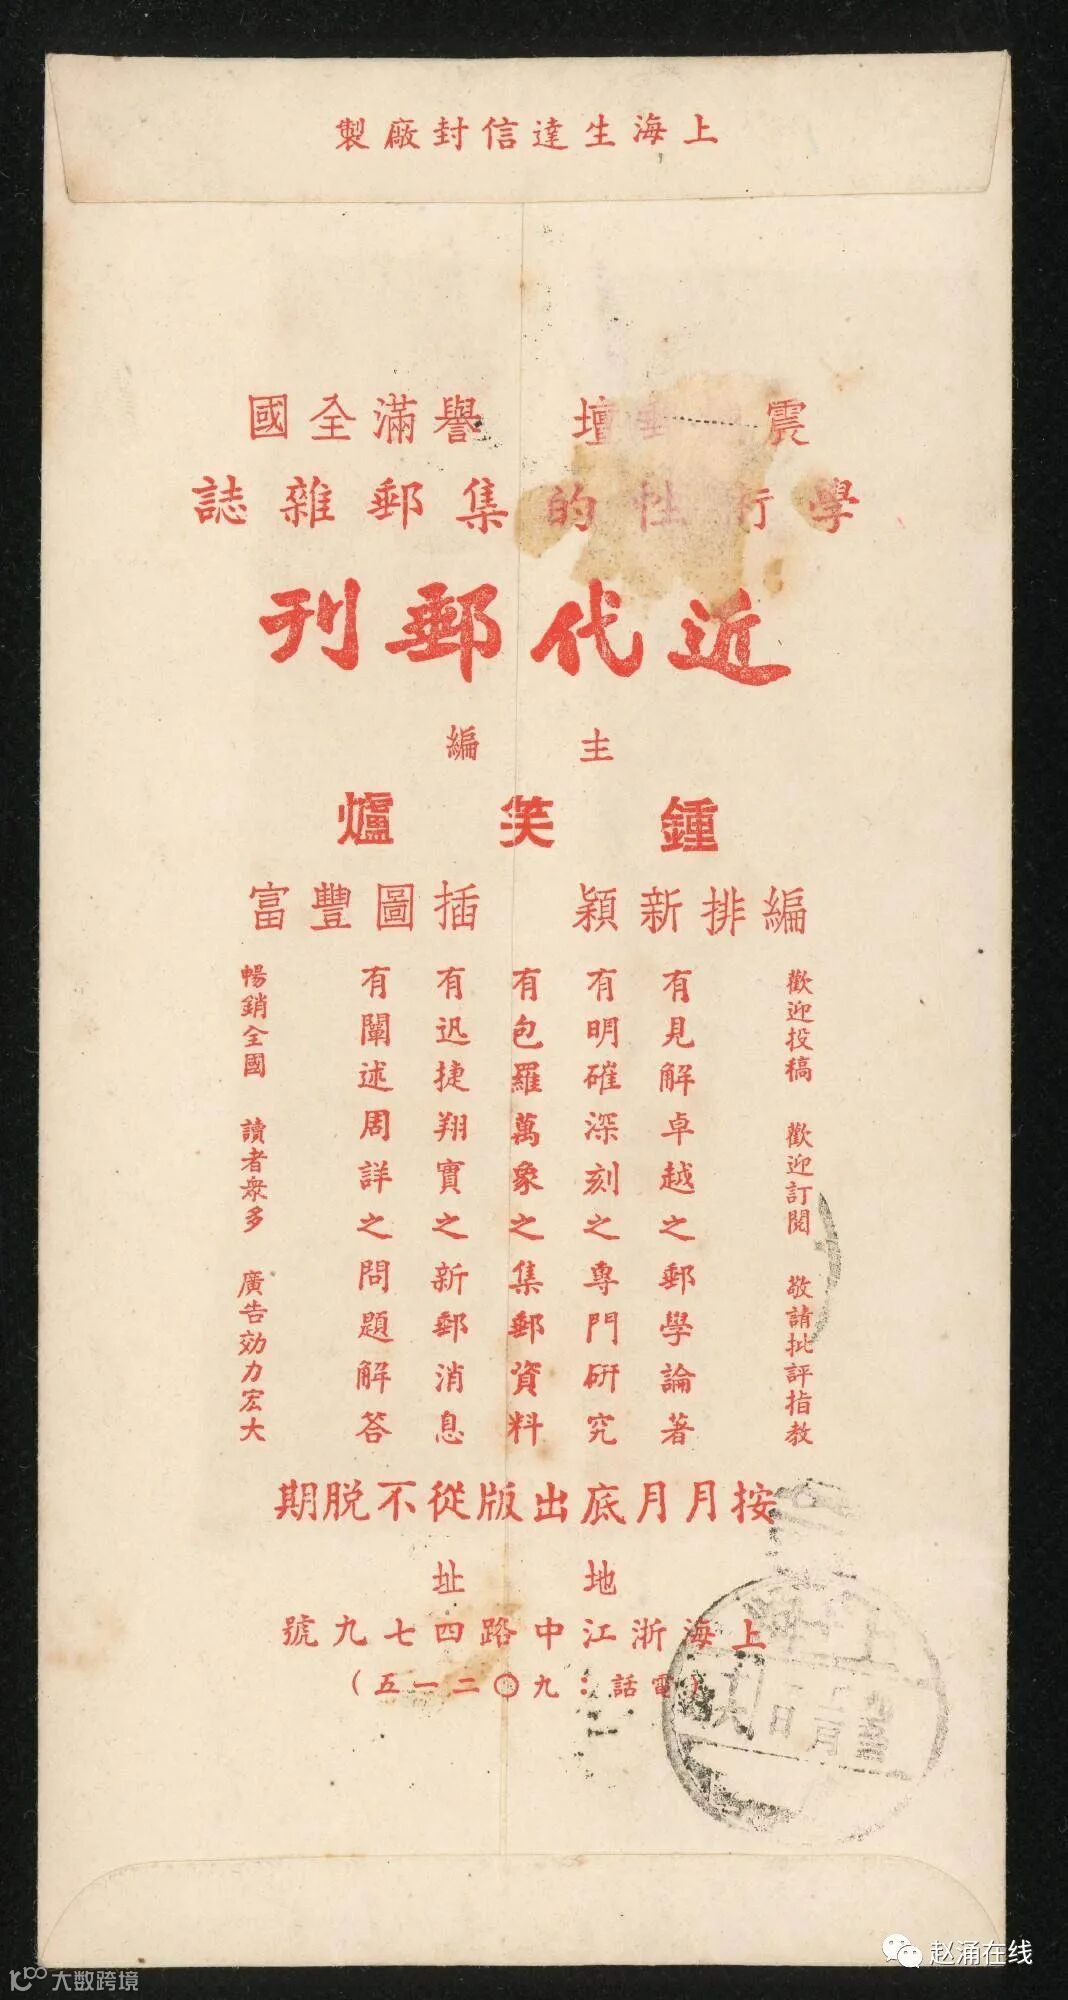 上海生達信封廠製
震 壇 譽滿全國
學術性的集郵雜誌
近代郵刊
主編
鍾笑爐
編排新穎 插圖豐富
歡迎投稿 歡迎訂閱 敬請批評指教
有見解卓越之郵學論著
有明確深刻之專門研究
有包羅萬象之集郵資料
有迅捷翔實之新郵消息
有闡述周詳之問題解答
暢銷全國 讀者衆多 廣告効力宏大
按月月底出版從不脫期
地址
上海浙江中路四七九號
(電話：九〇二一五)
上海
赵涌在线
大数跨境